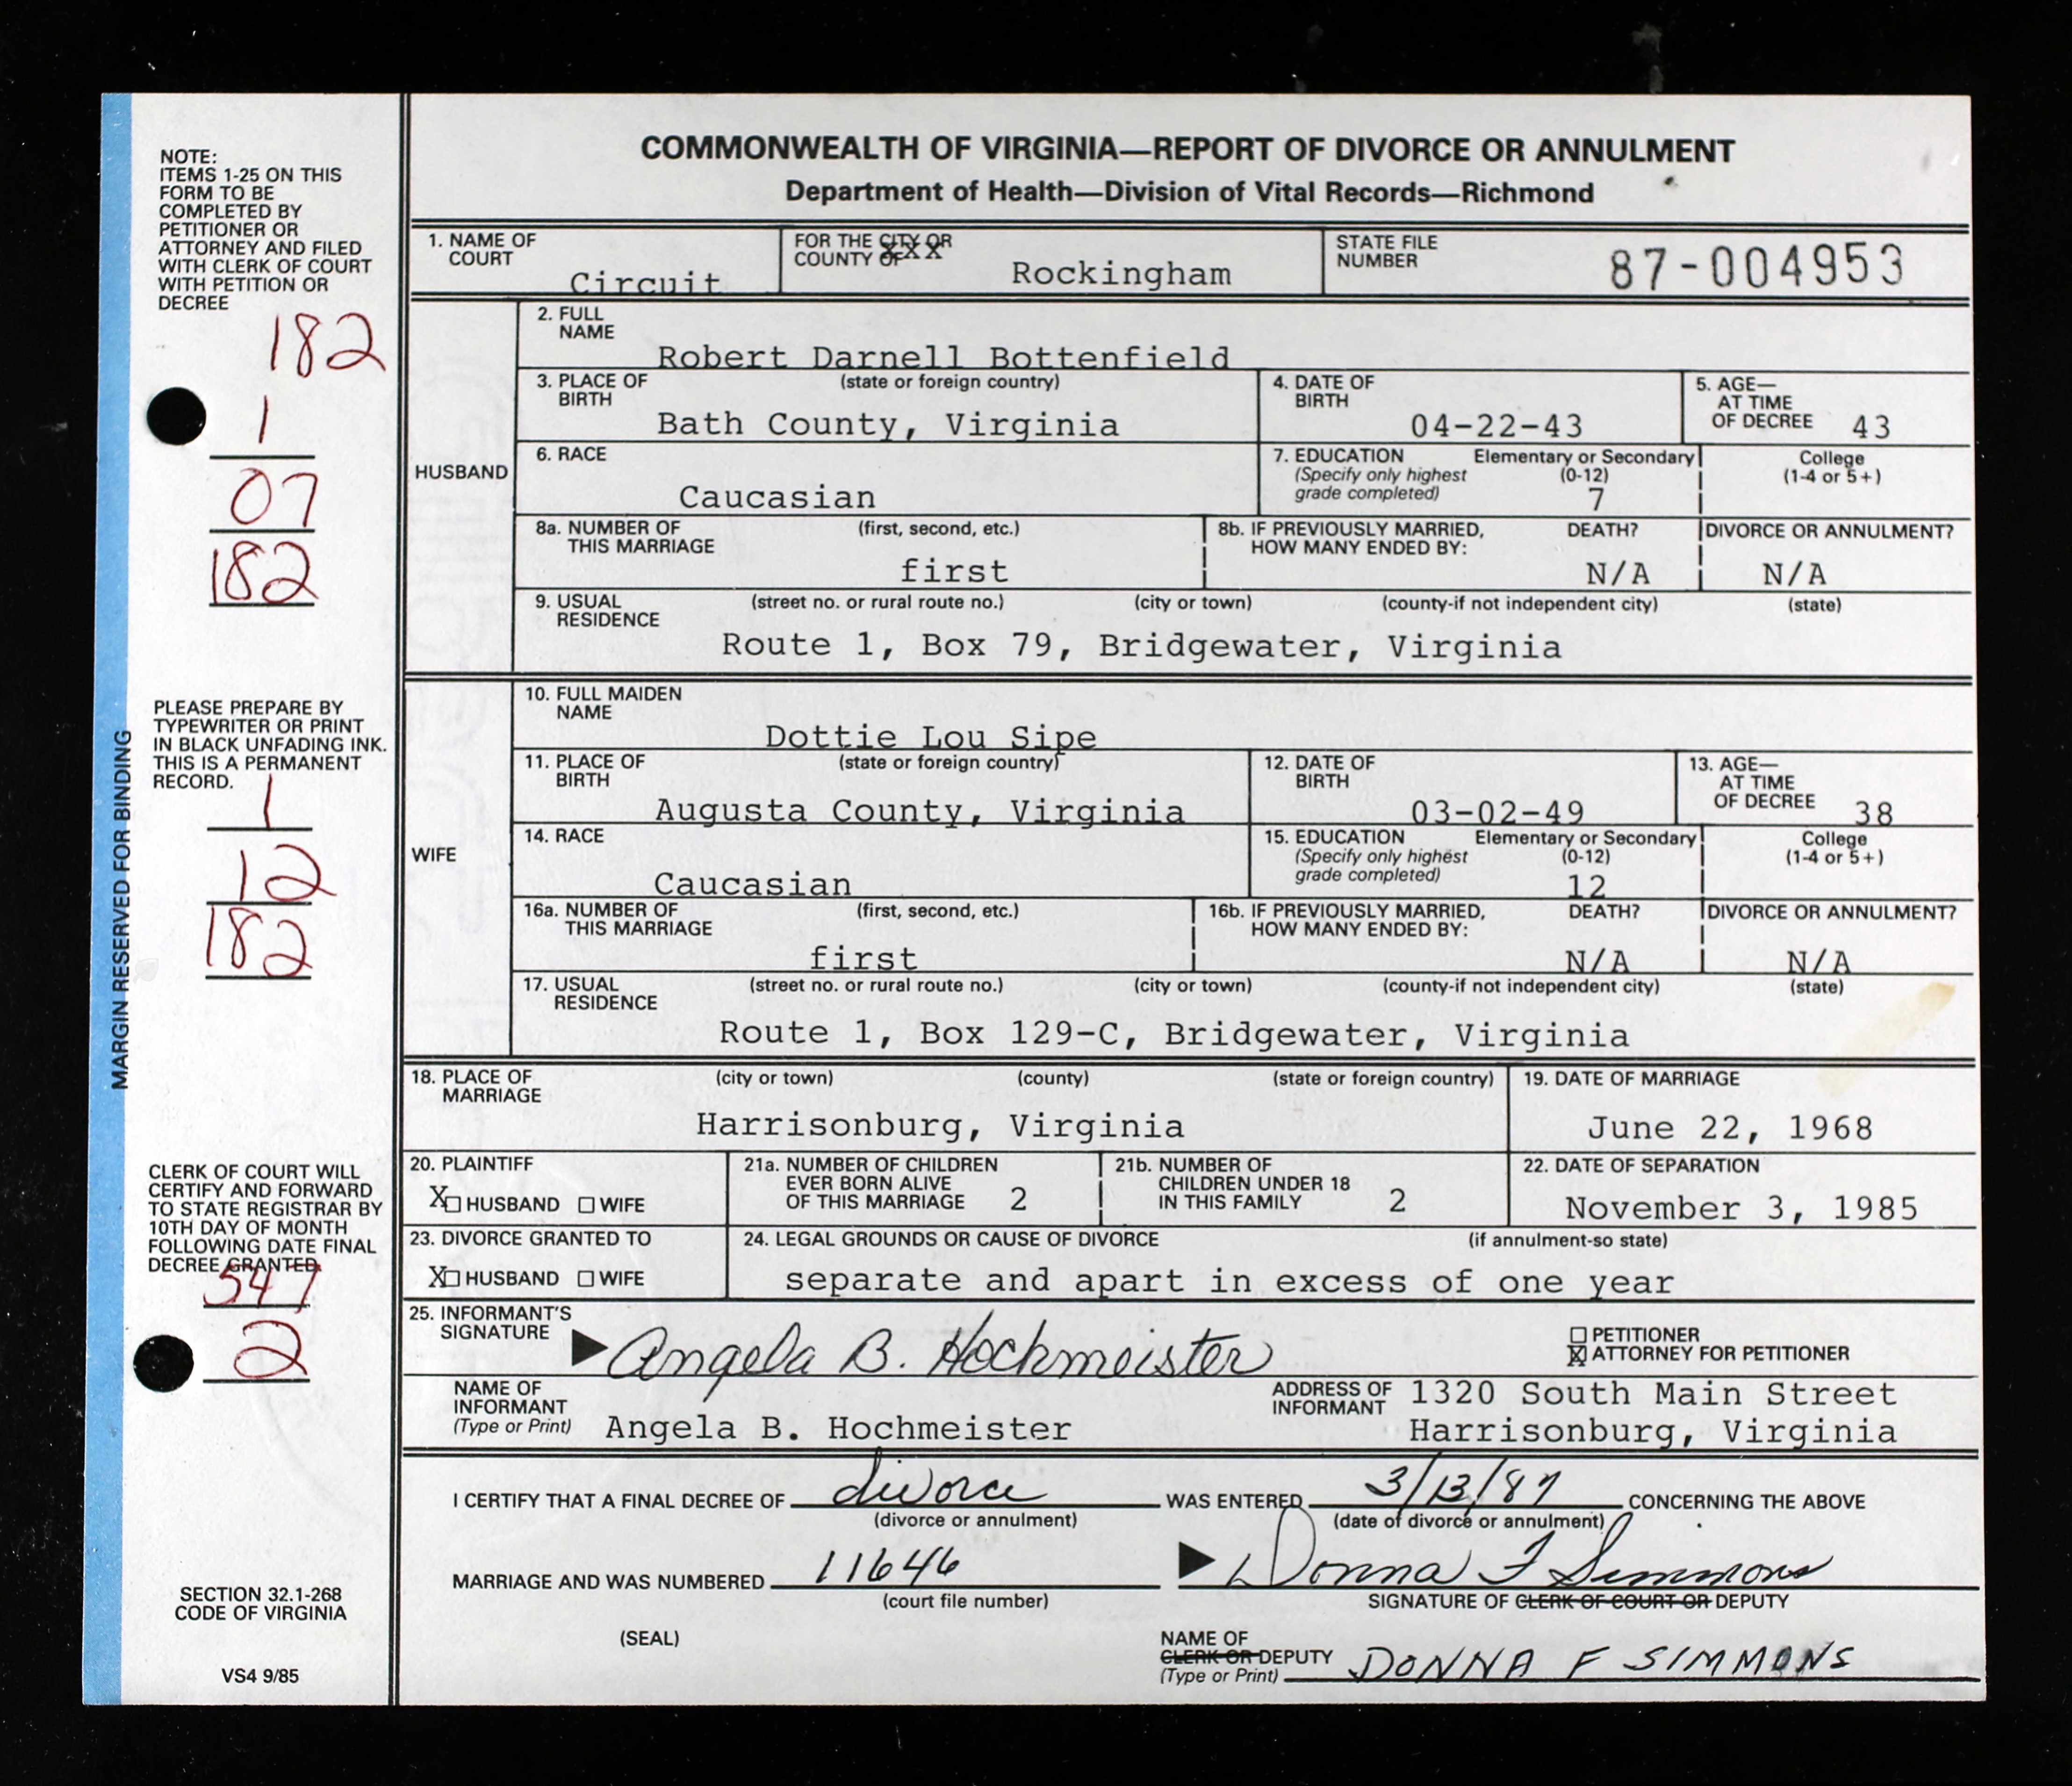 COMMONWEALTH OF VIRGINIA—REPORT OF DIVORCE OR ANNULMENT
Department of Health—Division of Vital Records—Richmond
NOTE:
ITEMS 1-25 ON THIS
FORM TO BE
COMPLETED BY
PETITIONER OR
ATTORNEY AND FILED
WITH CLERK OF COURT
WITH PETITION OR
DECREE
182
1
07
182
MARGIN RESERVED FOR BINDING
PLEASE PREPARE BY
TYPEWRITER OR PRINT
IN BLACK UNFADING INK.
THIS IS A PERMANENT
RECORD.
1
12
182
CLERK OF COURT WILL
CERTIFY AND FORWARD
TO STATE REGISTRAR BY
10TH DAY OF MONTH
FOLLOWING DATE FINAL
DECREE GRANTED.
547
2
SECTION 32.1-268
CODE OF VIRGINIA
VS4 9/85
1. NAME OF COURT Circuit
FOR THE CITY OR COUNTY OF XXX Rockingham
STATE FILE NUMBER 87-004953
HUSBAND
2. FULL NAME
Robert Darnell Bottenfield
3. PLACE OF BIRTH (state or foreign country)
Bath County, Virginia
4. DATE OF BIRTH
04-22-43
5. AGE— AT TIME OF DECREE 43
6. RACE
Caucasian
7. EDUCATION Elementary or Secondary College
(Specify only highest grade completed) (0-12) (1-4 or 5+)
7
8a. NUMBER OF THIS MARRIAGE (first, second, etc.)
first
8b. IF PREVIOUSLY MARRIED, HOW MANY ENDED BY: DEATH? DIVORCE OR ANNULMENT?
N/A N/A
9. USUAL RESIDENCE (street no. or rural route no.) (city or town) (county-if not independent city) (state)
Route 1, Box 79, Bridgewater, Virginia
WIFE
10. FULL MAIDEN NAME
Dottie Lou Sipe
11. PLACE OF BIRTH (state or foreign country)
Augusta County, Virginia
12. DATE OF BIRTH
03-02-49
13. AGE— AT TIME OF DECREE 38
14. RACE
Caucasian
15. EDUCATION Elementary or Secondary College
(Specify only highest grade completed) (0-12) (1-4 or 5+)
12
16a. NUMBER OF THIS MARRIAGE (first, second, etc.)
first
16b. IF PREVIOUSLY MARRIED, HOW MANY ENDED BY: DEATH? DIVORCE OR ANNULMENT?
N/A N/A
17. USUAL RESIDENCE (street no. or rural route no.) (city or town) (county-if not independent city) (state)
Route 1, Box 129-C, Bridgewater, Virginia
18. PLACE OF MARRIAGE (city or town) (county) (state or foreign country)
Harrisonburg, Virginia
19. DATE OF MARRIAGE
June 22, 1968
20. PLAINTIFF
X HUSBAND WIFE
21a. NUMBER OF CHILDREN EVER BORN ALIVE OF THIS MARRIAGE 2
21b. NUMBER OF CHILDREN UNDER 18 IN THIS FAMILY 2
22. DATE OF SEPARATION
November 3, 1985
23. DIVORCE GRANTED TO
X HUSBAND WIFE
24. LEGAL GROUNDS OR CAUSE OF DIVORCE (if annulment-so state)
separate and apart in excess of one year
25. INFORMANT'S SIGNATURE Angela B. Hochmeister
PETITIONER
X ATTORNEY FOR PETITIONER
NAME OF INFORMANT (Type or Print) Angela B. Hochmeister
ADDRESS OF INFORMANT 1320 South Main Street
Harrisonburg, Virginia
I CERTIFY THAT A FINAL DECREE OF divorce WAS ENTERED 3/13/87 CONCERNING THE ABOVE
(divorce or annulment) (date of divorce or annulment)
MARRIAGE AND WAS NUMBERED 11646 Donna F Simmons
(court file number) SIGNATURE OF CLERK OF COURT OR DEPUTY
(SEAL)
NAME OF CLERK OR DEPUTY (Type or Print) DONNA F SIMMONS